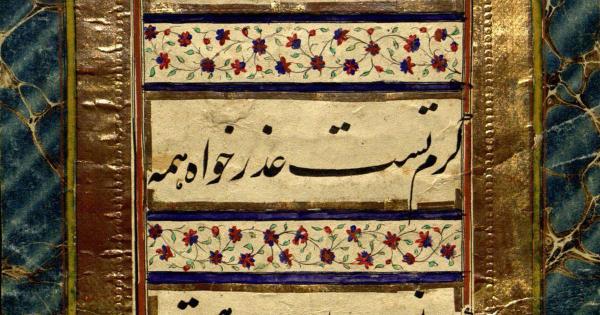 کرم تست عذر خواه همه